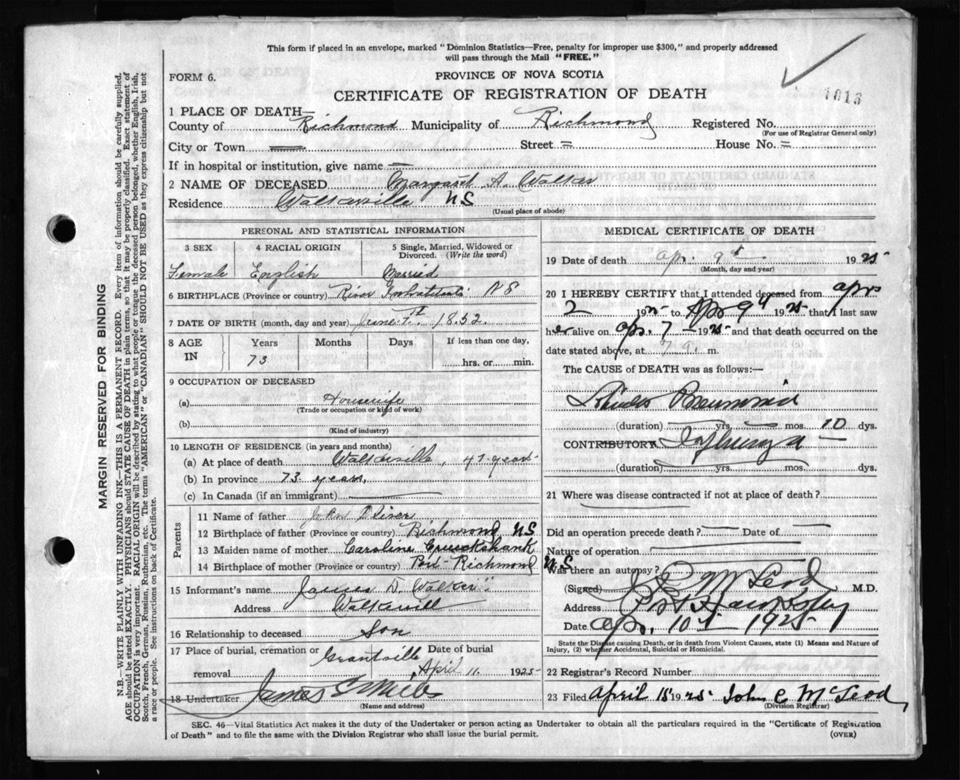 This form if placed in an envelope, marked "Dominion Statistics—Free, penalty for improper use $300," and properly addressed
will pass through the Mail "FREE."
FORM 6.
PROVINCE OF NOVA SCOTIA
CERTIFICATE OF REGISTRATION OF DEATH
1013
1 PLACE OF DEATH—
County of Richmond Municipality of Richmond Registered No.
(For use of Registrar General only)
City or Town Street House No.
If in hospital or institution, give name
2 NAME OF DECEASED Margaret A. Walker
Residence Walkerville NS
(Usual place of abode)
PERSONAL AND STATISTICAL INFORMATION
3 SEX 4 RACIAL ORIGIN 5 Single, Married, Widowed or Divorced. (Write the word)
Female English Married
6 BIRTHPLACE (Province or country) River NS
7 DATE OF BIRTH (month, day and year) June 1852
8 AGE IN Years Months Days If less than one day,
73 hrs. or min.
9 OCCUPATION OF DECEASED
(a) Housewife
(Trade or occupation or kind of work)
(b)
(Kind of industry)
10 LENGTH OF RESIDENCE (in years and months)
(a) At place of death Walkerville, 47 years
(b) In province 73 years
(c) In Canada (if an immigrant)
Parents
11 Name of father John Oliver
12 Birthplace of father (Province or country) Richmond NS
13 Maiden name of mother Caroline Cruickshank
14 Birthplace of mother (Province or country) Port Richmond NS
15 Informant's name James D. Walker
Address Walkerville
16 Relationship to deceased Son
17 Place of burial, cremation or removal Grantville Date of burial April 11 1925
18 Undertaker James
(Name and address)
MEDICAL CERTIFICATE OF DEATH
19 Date of death Apr. 9th 1925
(Month, day and year)
20 I HEREBY CERTIFY that I attended deceased from Apr
2 1925 to Apr 9th 1925 that I last saw
her alive on Apr. 7 1925 and that death occurred on the
date stated above, at m.
The CAUSE of DEATH was as follows:—
Pneumonia
(duration) yrs. mos. 10 dys.
CONTRIBUTORY Influenza
(duration) yrs. mos. dys.
21 Where was disease contracted if not at place of death?
Did an operation precede death? Date of
Nature of operation
Was there an autopsy?
(Signed) McLeod M.D.
Address Port Hawkesbury
Date Apr. 10th 1925
State the Disease causing Death, or in death from Violent Causes, state (1) Means and Nature of
Injury, (2) whether Accidental, Suicidal or Homicidal.
22 Registrar's Record Number
23 Filed April 15 1925 John C McLeod
(Division Registrar)
SEC. 46—Vital Statistics Act makes it the duty of the Undertaker or person acting as Undertaker to obtain all the particulars required in the "Certificate of Registration
of Death" and to file the same with the Division Registrar who shall issue the burial permit.
(OVER)
MARGIN RESERVED FOR BINDING
N.B.—WRITE PLAINLY WITH UNFADING INK—THIS IS A PERMANENT RECORD. Every item of information should be carefully supplied.
AGE should be stated EXACTLY. PHYSICIANS should STATE CAUSE OF DEATH in plain terms, so that it may be properly classified. Exact statement of
OCCUPATION is very important. RACIAL ORIGIN will be described by stating to what people or tongue the deceased person belonged, whether English, Irish,
Scotch, French, German, Russian, Ruthenian, etc. The terms "AMERICAN" or "CANADIAN" SHOULD NOT BE USED as they express citizenship but not
a race or people. See instructions on back of Certificate.